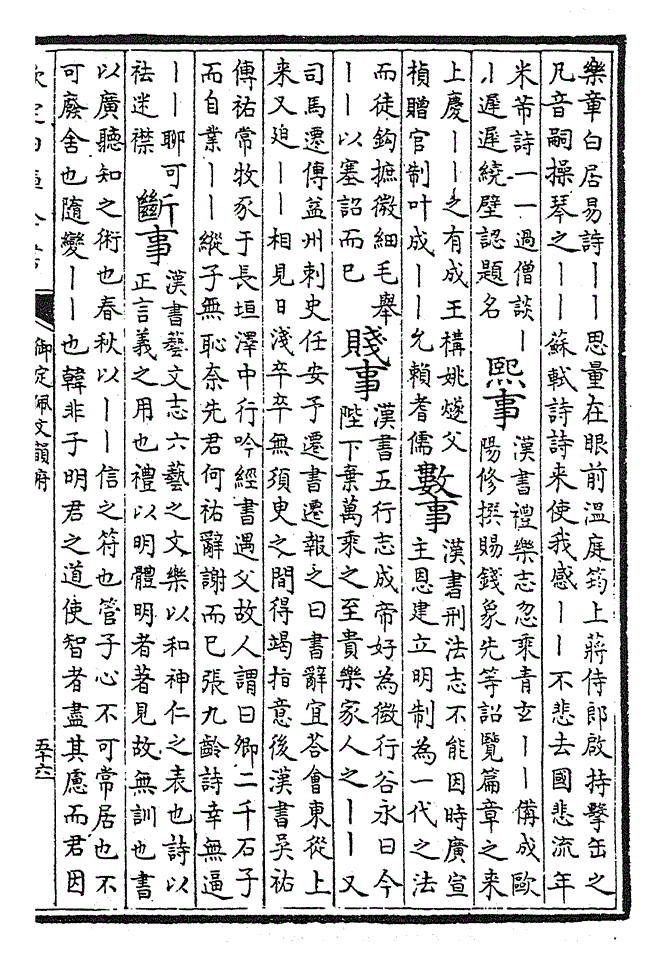 樂章白居易詩丨丨思量在眼前溫庭筠上蔣侍郎啟持擊缶之
凡音嗣操琴之丨丨蘇軾詩詩来使我感丨丨不悲去國悲流年
米芾詩一一過僧談丨
丨遲遲繞壁認題名
熙事
漢書禮樂志忽乘青玄丨丨備成歐
陽修撰賜錢象先等詔覽篇章之来
上慶丨丨之有成王構姚燧父
楨贈官制叶成丨丨允賴耆儒
數事
漢書刑法志不能因時廣宣
主恩建立明制為一代之法
而徒鈎摭微細毛舉
丨丨以塞詔而已
賤事
漢書五行志成帝好為微行谷永曰今
陛下棄萬乘之至貴樂家人之丨丨又
司馬遷傳益州刺史任安予遷書遷報之曰書辭宜荅會東從上
来又迫丨丨相見日淺卒卒無須臾之間得竭指意後漢書吳祐
傳祐常牧豕于長垣澤中行吟經書遇父故人謂曰卿二千石子
而自業丨丨縱子無恥奈先君何祐辭謝而已張九齡詩幸無逼
丨丨聊可
袪迷襟
斷事
漢書藝文志六藝之文樂以和神仁之表也詩以
正言義之用也禮以明體明者著見故無訓也書
以廣聽知之術也春秋以丨丨信之符也管子心不可常居也不
可廢舍也隨變丨丨也韓非子明君之道使智者盡其慮而君因
御定佩文韻府
五十六